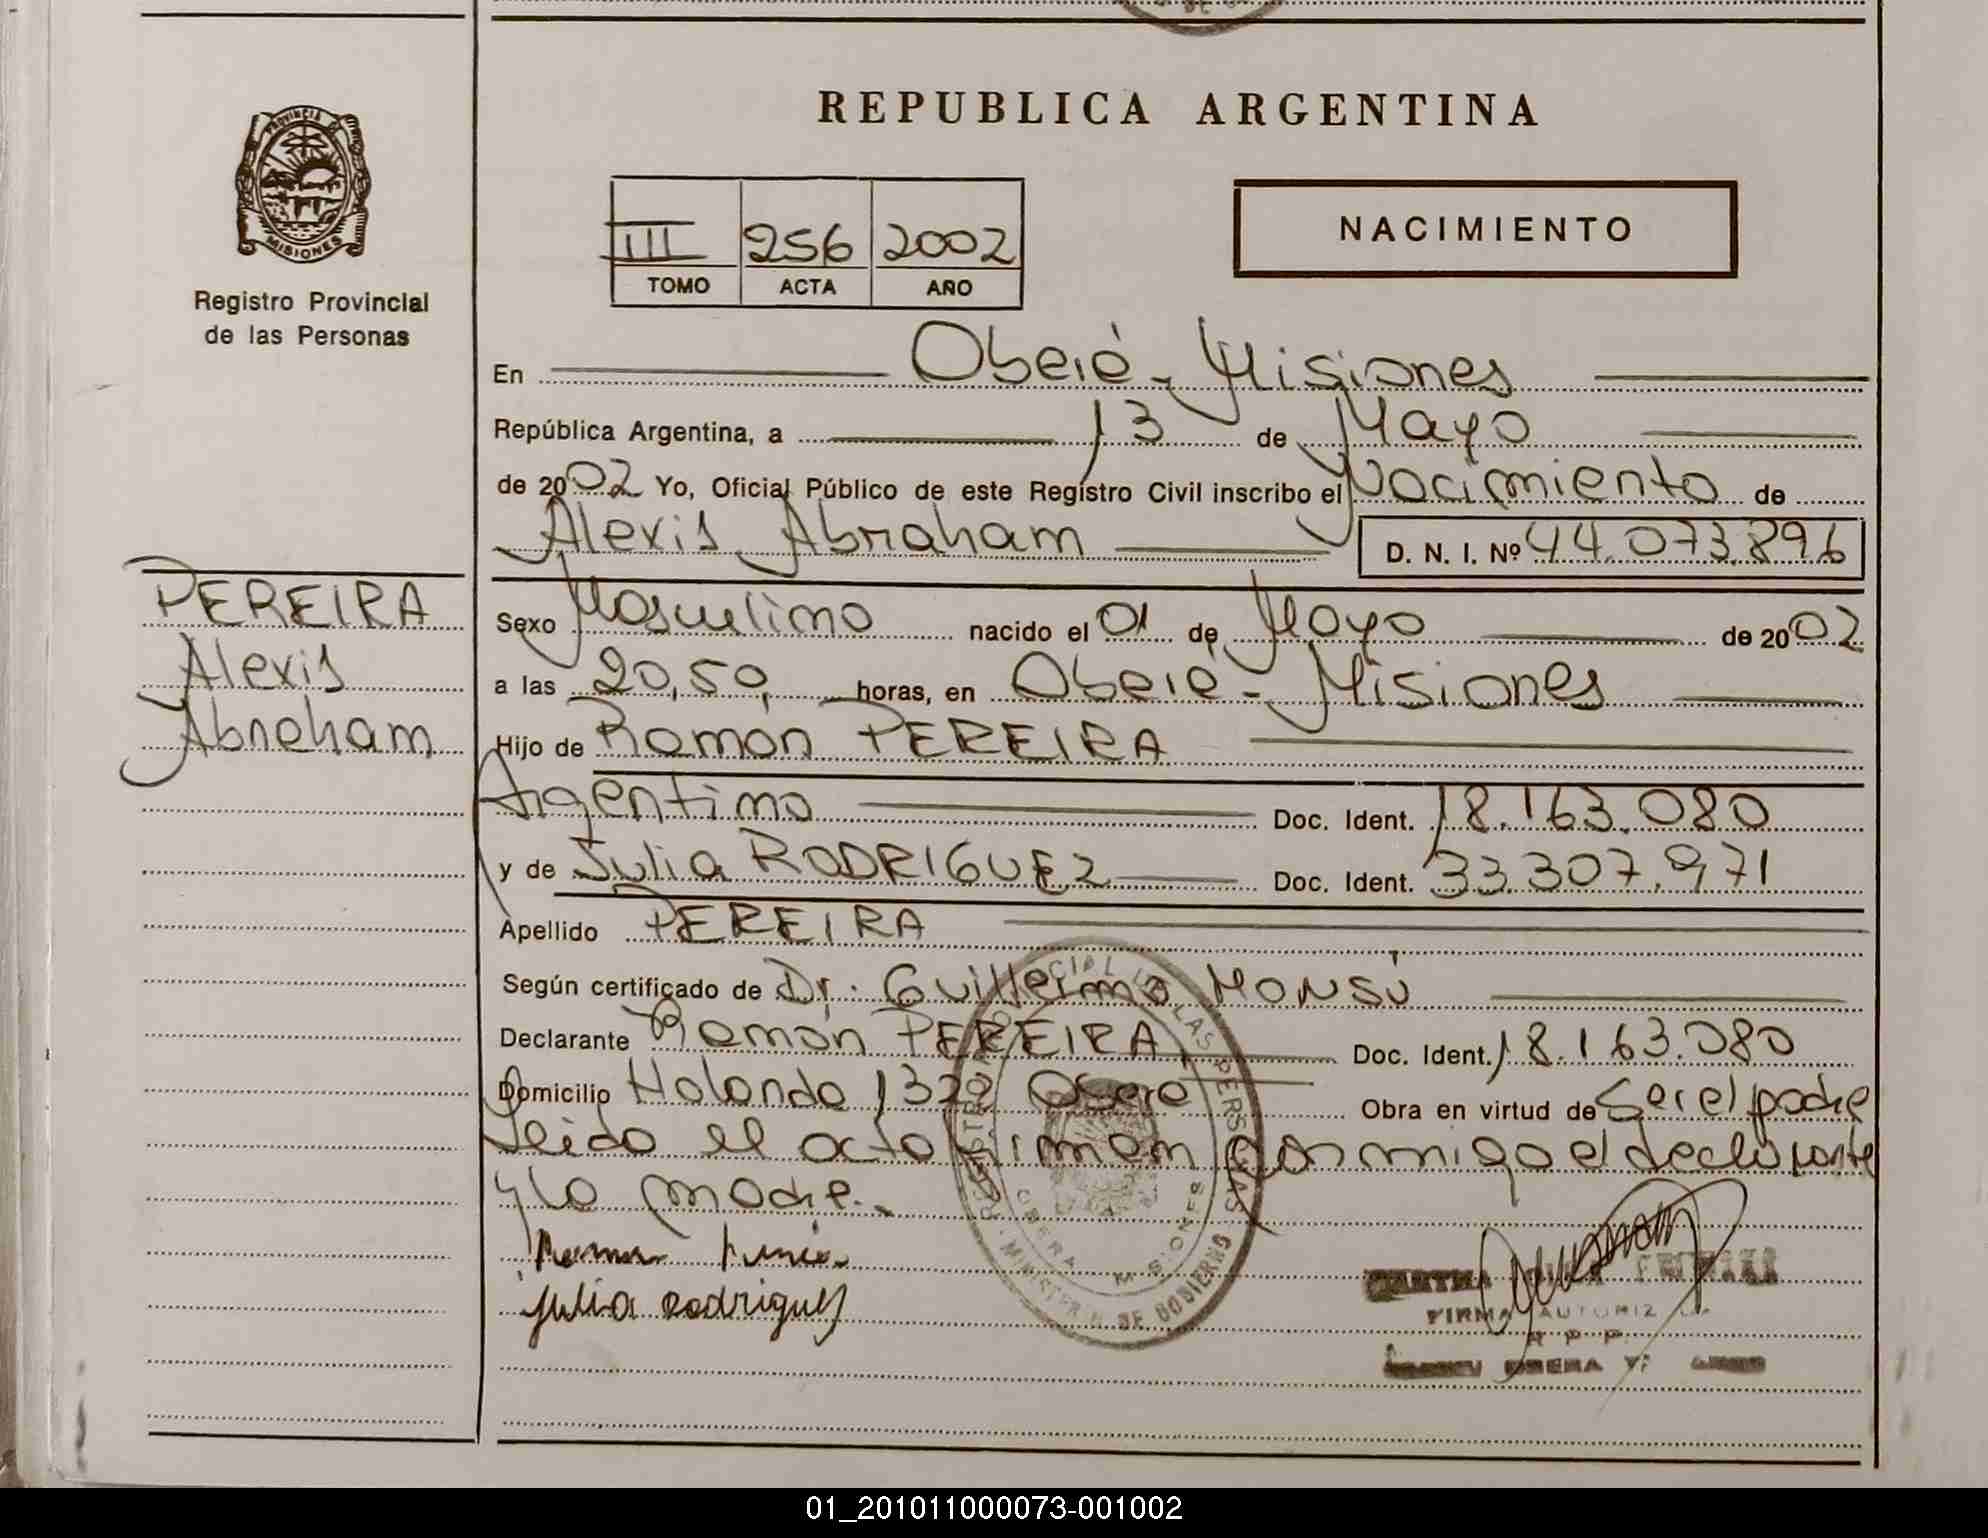 REPUBLICA ARGENTINA
PROVINCIA DE
MISIONES
Registro Provincial
de las Personas
III 256 2002
TOMO ACTA AÑO
NACIMIENTO
En Oberá - Misiones
República Argentina, a 13 de Mayo
de 2002 Yo, Oficial Público de este Registro Civil inscribo el Nacimiento de
Alexis Abraham D. N. I. Nº 44.073.896
PEREIRA
Alexis
Abraham
Sexo Masculino nacido el 01 de Mayo de 2002
a las 20,50, horas, en Oberá - Misiones
Hijo de Ramón PEREIRA
Argentino Doc. Ident. 18.163.080
y de Julia RODRIGUEZ Doc. Ident. 33.307.971
Apellido PEREIRA
Según certificado de Dr. Guillermo MONSÚ
Declarante Ramón PEREIRA Doc. Ident. 18.163.080
Domicilio Holanda 1322 Oberá Obra en virtud de Ser el padre
Leido el acta firman conmigo el declarante
y la madre.
julia rodriguez
REGISTRO PROVINCIAL DE LAS PERSONAS
OBERA MISIONES
MINISTERIO DE GOBIERNO
FIRMA AUTORIZ
R P P
OBERA
01_201011000073-001002